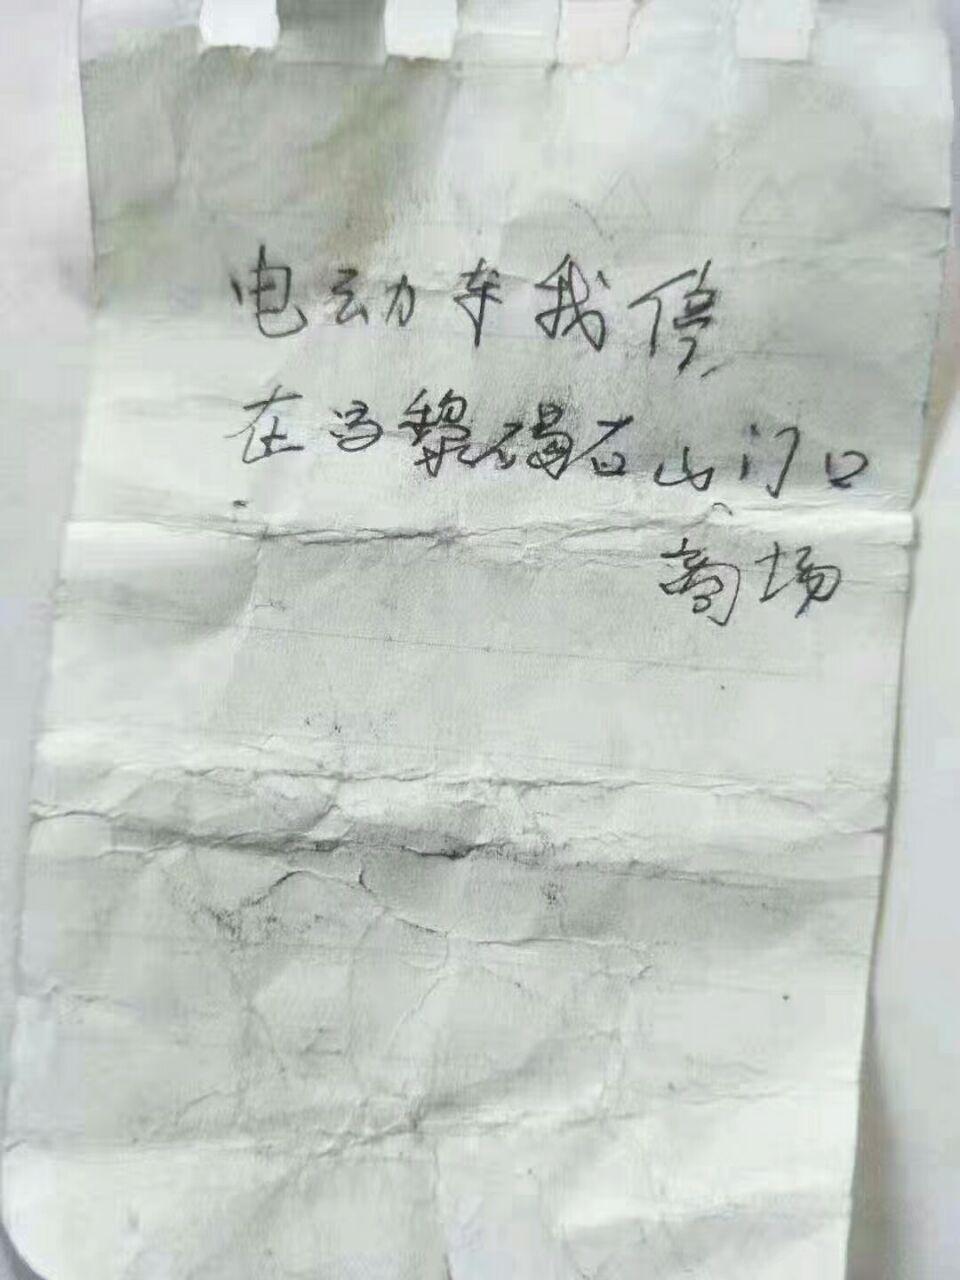 电动车我停
在昌黎碣石山门口
商场